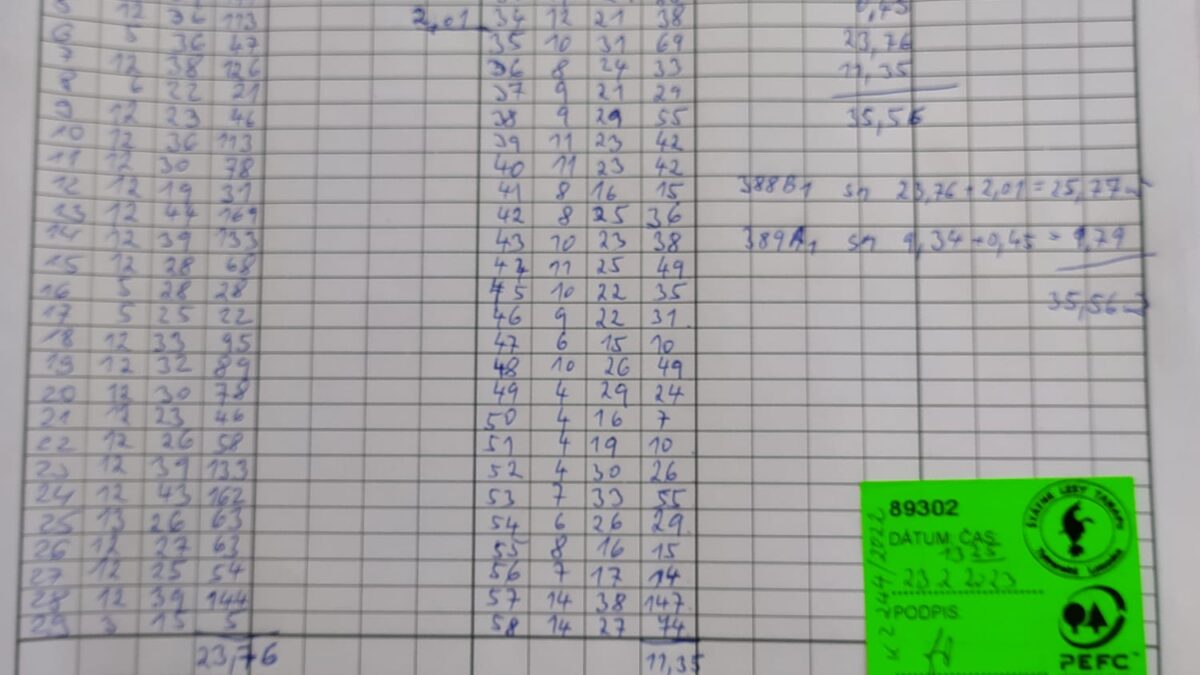 5 12 36 113
6 5 36 47
7 12 38 126
8 6 22 21
9 12 23 46
10 12 36 113
11 12 30 78
12 12 19 31
13 12 44 169
14 12 39 133
15 12 28 68
16 5 28 28
17 5 25 22
18 12 33 95
19 12 32 89
20 12 30 78
21 12 23 46
22 12 26 58
23 12 39 133
24 12 43 162
25 13 26 63
26 12 27 63
27 12 25 54
28 12 39 144
29 3 15 5
23,76
2,01
34 12 21 38
35 10 31 69
36 8 24 33
37 9 21 29
38 9 29 55
39 11 23 42
40 11 23 42
41 8 16 15
42 8 25 36
43 10 23 38
44 11 25 49
45 10 22 35
46 9 22 31
47 6 15 10
48 10 26 49
49 4 29 24
50 4 16 7
51 4 19 10
52 4 30 26
53 7 33 55
54 6 26 29
55 8 16 15
56 7 17 14
57 14 38 147
58 14 27 74
11,35
0,45
23,76
11,35
35,56
388B1 sm 23,76 + 2,01 = 25,77
389A1 sm 9,34 + 0,45 = 9,79
35,56
89302
DÁTUM, ČAS:
13 25
23 2 2023
PODPIS:
K2 244/2022
ŠTÁTNE LESY TANAPU
TATRANSKÁ LOMNICA
PEFC